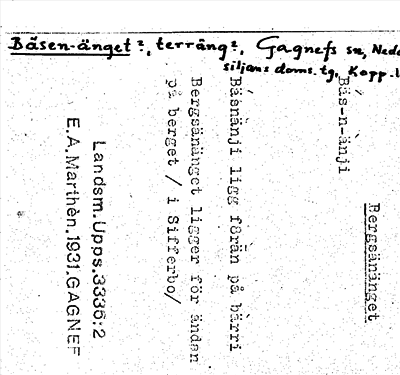 Bäsen-änget ?, terräng?, Gagnefs sn, Neda
siljans doms. tg, Kopp. l
Bergsänänget
Bäs-n-ànji
Bäsnànji ligg fårän på bàrri
Bergsänänget ligger för ändan
på berget / i Sifferbo/
Landsm.Upps.3336:2
E.A.Marthèn.1931.GAGNEF